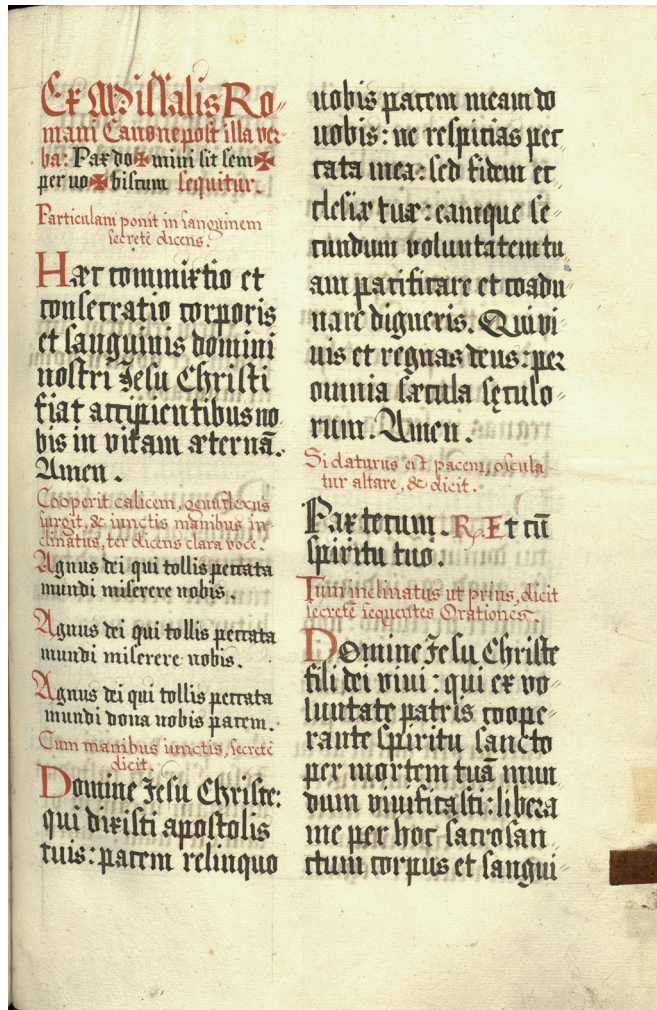 Ex Missalis Ro-
mani Canone post illa ver-
ba: Pax do✠mini sit sem✠
per vo✠biscum sequitur.
Particulam ponit in sanguinem
secretè dicens.
Hæc commixtio et
consecratio corporis
et sanguinis domini
nostri Jesu Christi
fiat accipientibus no
bis in vitam æternā.
Amen.
Cooperit calicem, genuflexus
surgit, & iunctis manibus in-
clinatus, ter dicens clara voce.
Agnus dei qui tollis peccata
mundi miserere nobis.
Agnus dei qui tollis peccata
mundi miserere nobis.
Agnus dei qui tollis peccata
mundi dona nobis pacem.
Cum manibus iunctis, secretè
dicit.
Domine Jesu Christe:
qui dixisti apostolis
tuis: pacem relinquo
vobis pacem meam do
vobis: ne respicias pec
cata mea: sed fidem ec
clesiæ tuæ: eamque se-
cundum voluntatem tu-
am pacificare et coadu-
nare digneris. Qui vi-
vis et regnas deus: per
omnia sæcula sęculo-
rum. Amen.
Si daturus est pacem, oscula-
tur altare, & dicit.
Pax tecum. ℟. Et cū
spiritu tuo.
Tum inclinatus ut prius, dicit
secretè sequentes Orationes.
Domine Jesu Christe
fili dei vivi: qui ex vo-
luntate patris coope-
rante spiritu sancto
per mortem tuā mun-
dum vivificasti: libera
me per hoc sacrosan-
ctum corpus et sangui-